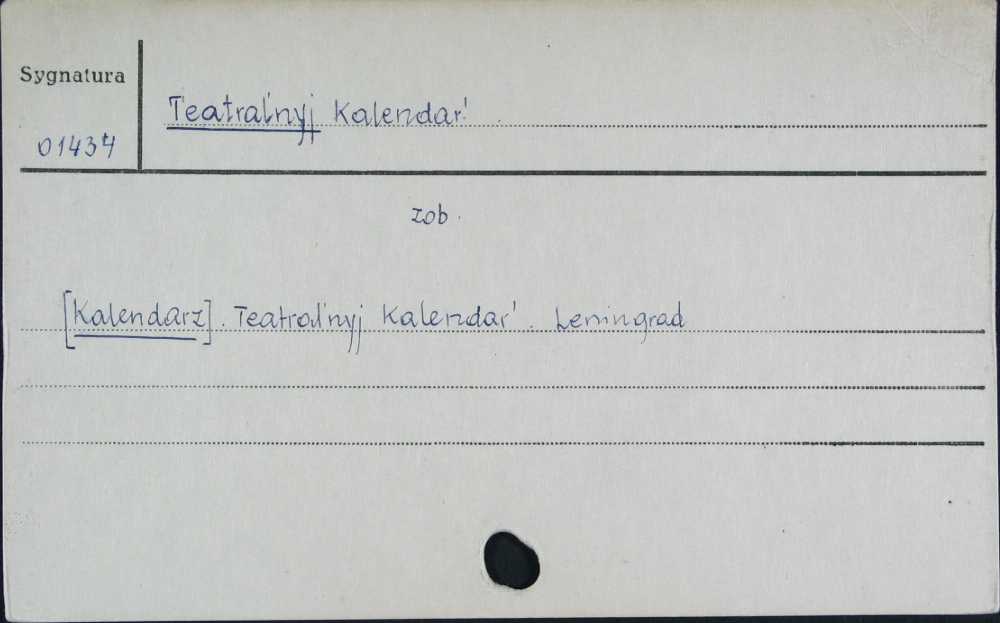 Sygnatura
Teatral'nyj Kalendar'
01437
zob.
[Kalendarz]. Teatral'nyj Kalendar'. Leningrad